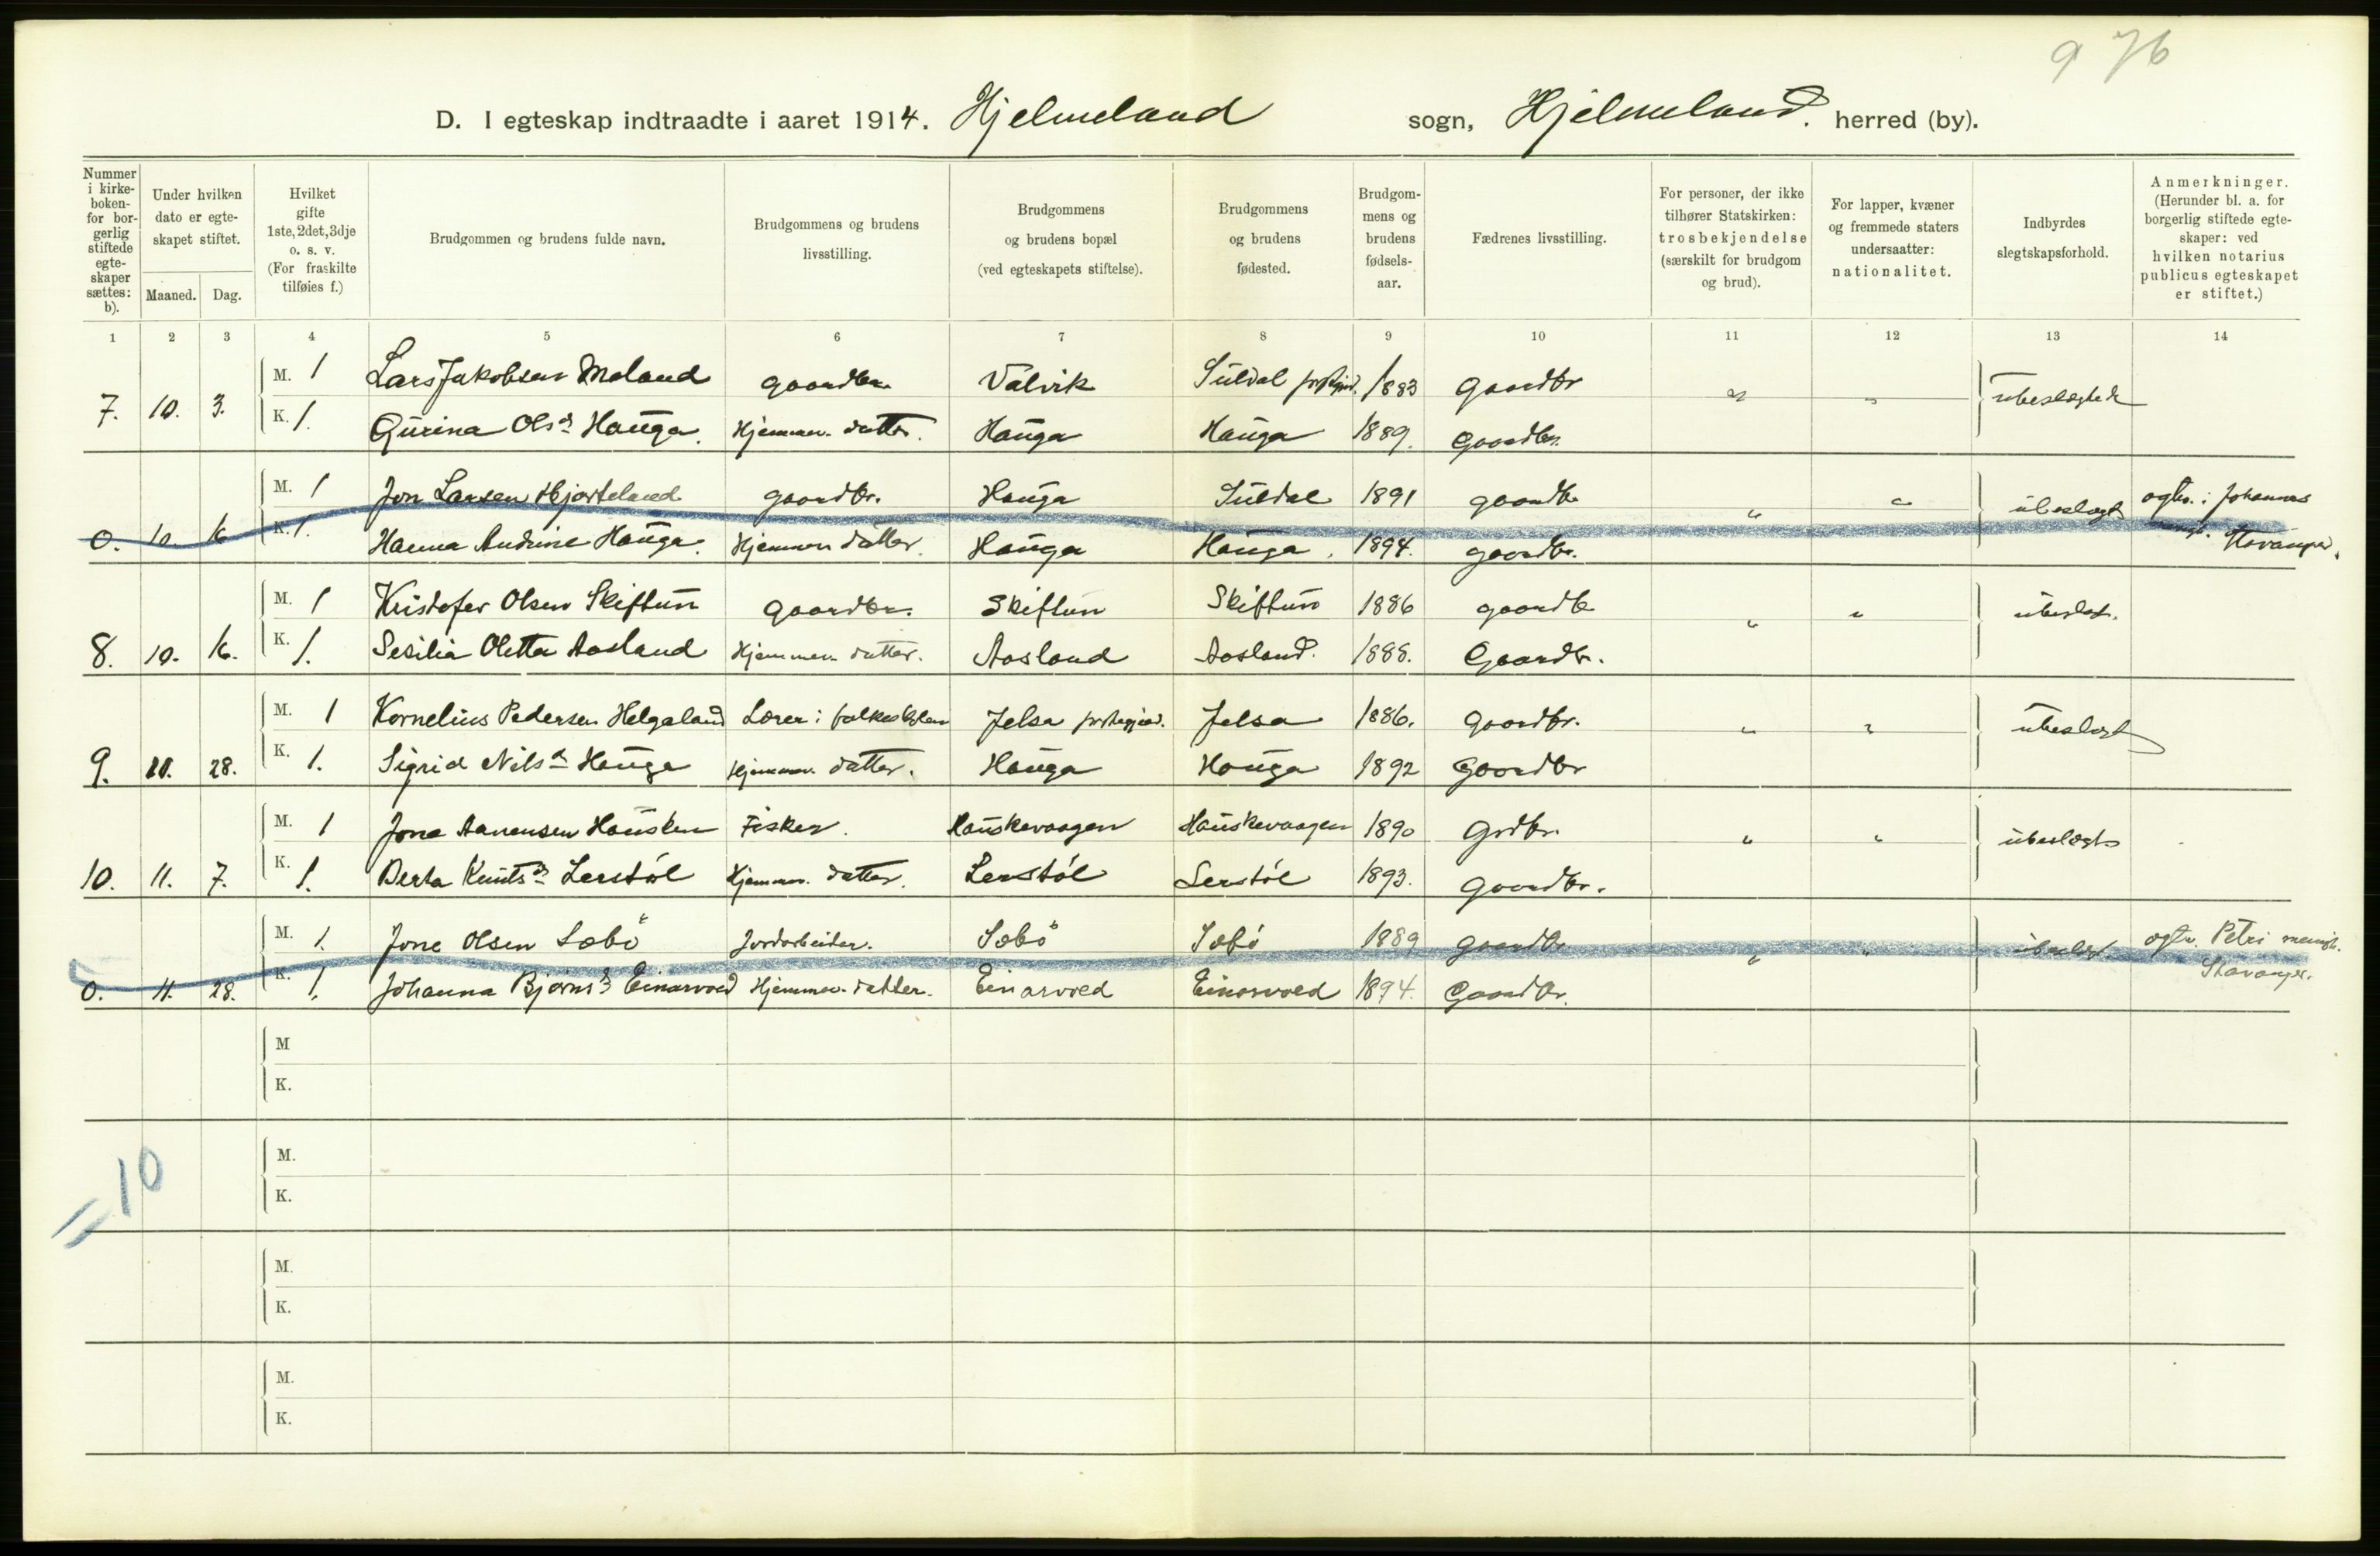 9 76
D. I egteskap indtraadte i aaret 1914. Hjelmeland sogn, Hjelmeland. herred (by).
Nummer i kirkeboken for borgerlig stiftede egteskaper sættes: b).
Under hvilken dato er egteskapet stiftet.
Maaned. Dag.
Hvilket gifte 1ste, 2det, 3dje o. s. v. (For fraskilte tilføies f.)
Brudgommen og brudens fulde navn.
Brudgommens og brudens livsstilling.
Brudgommens og brudens bopæl (ved egteskapets stiftelse).
Brudgommens og brudens fødested.
Brudgommens og brudens fødselsaar.
Fædrenes livsstilling.
For personer, der ikke tilhører Statskirken: trosbekjendelse (særskilt for brudgom og brud).
For lapper, kvæner og fremmede staters undersaatter: nationalitet.
Indbyrdes slegtskapsforhold.
Anmerkninger. (Herunder bl. a. for borgerlig stiftede egteskaper: ved hvilken notarius publicus egteskapet er stiftet.)
1 2 3 4 5 6 7 8 9 10 11 12 13 14
M. 1 Lars Jakobsen Meland gaardbr. Valvik Suldal prstgjed. 1883 gaardbr " " ubeslegtede
7. 10. 3. K. 1. Gurina Olsd. Hauga. Hjemmev. datter. Hauga Hauga 1889. Gaardbr.
M. 1 Jon Larsen Hjorteland gaardbr. Hauga Suldal 1891 gaardbr " " ubeslegt ogtv. i Johannes
0. 10. 16 K. 1. Hanna Andrine Hauga. Hjemmev. datter. Hauga Hauga. 1894. gaardbr. Stavanger.
M. 1 Kristofer Olsen Skiftun gaardbr. Skiftun Skiftun 1886 gaardbr " " ubeslegt.
8. 10. 16. K. 1. Sesilia Oletta Aasland Hjemmev. datter. Aasland Aasland. 1888. Gaardbr.
M. 1 Kornelius Pedersen Helgaland Lærer i folkeskolen Jelsa prstegjed. Jelsa 1886. gaardbr. " " ubeslegt
9. 10. 28. K. 1. Sigrid Nilsd. Hauga Hjemmev. datter. Hauga Hauga 1892 Gaardbr
M. 1 Jone Aanensen Hausken Fisker. Hauskevaagen Hauskevaagen 1890 Grdbr. " " ubeslegt
10. 11. 7. K. 1. Berta Knutsd. Lerstøl Hjemmev. datter. Lerstøl Lerstøl 1893. gaardbr.
M. 1. Jone Olsen Sæbø Jordarbeider. Sæbø Sæbø 1889 gaardbr " " ubeslegt. ogtv. Petri menigh.
0. 11. 28. K. 1. Johanna Bjørnsd. Einarvoed Hjemmev. datter. Einarvoed Einarvoed 1894. Gaardbr. Stavanger.
M
K.
M.
K.
= 10
M.
K.
M.
K.